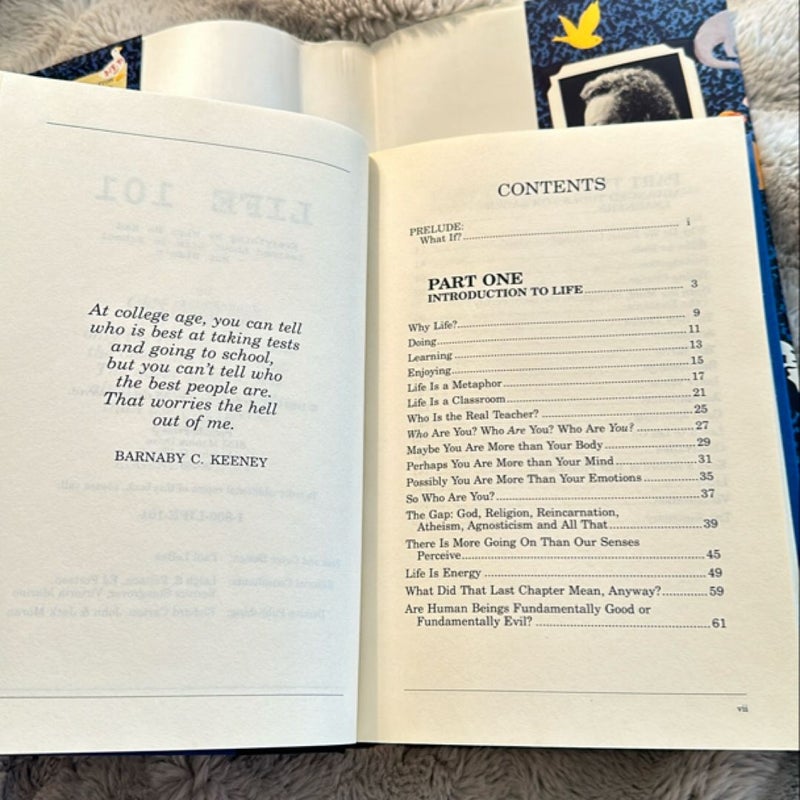 At college age, you can tell
who is best at taking tests
and going to school,
but you can't tell who
the best people are.
That worries the hell
out of me.
BARNABY C. KEENEY
CONTENTS
PRELUDE:
What If?.......... i
PART ONE
INTRODUCTION TO LIFE.......... 3
Why Life?.......... 9
Doing.......... 11
Learning.......... 13
Enjoying.......... 15
Life Is a Metaphor.......... 17
Life Is a Classroom.......... 21
Who Is the Real Teacher?.......... 25
Who Are You? Who Are You? Who Are You?.......... 27
Maybe You Are More than Your Body.......... 29
Perhaps You Are More than Your Mind.......... 31
Possibly You Are More Than Your Emotions.......... 35
So Who Are You?.......... 37
The Gap: God, Religion, Reincarnation,
Atheism, Agnosticism and All That.......... 39
There Is More Going On Than Our Senses
Perceive.......... 45
Life Is Energy.......... 49
What Did That Last Chapter Mean, Anyway?.......... 59
Are Human Beings Fundamentally Good or
Fundamentally Evil?.......... 61
vii
LIFE 101